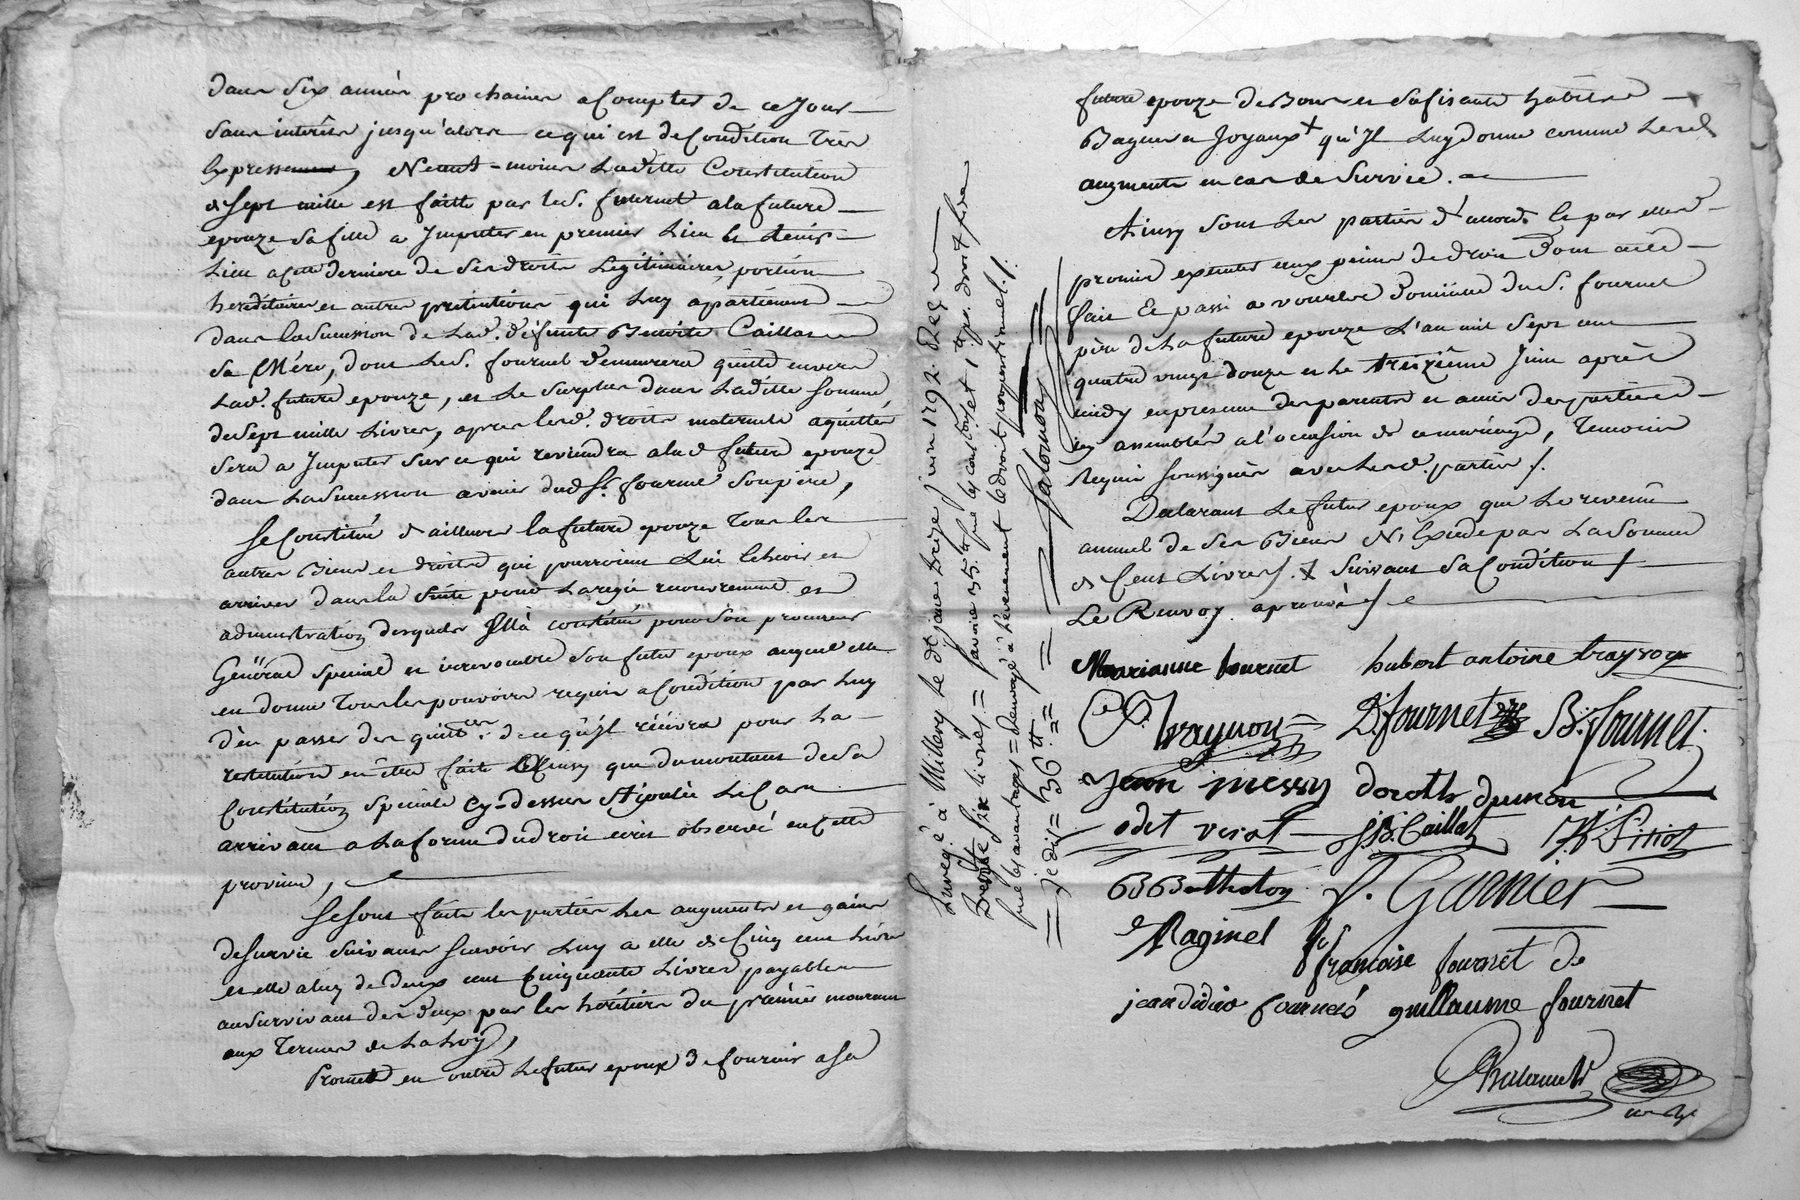 dans six années prochaines a Compter de ce Jour
sans interêts jusqu'alors ce qui est de Condition Très
Expresse, Neant-moins Laditte Constitution
de sept mille est faitte par led. s. fournet a la future
epouze sa fille a Imputer en premier Lieu Et tenir
Lieu a cette derniere de ses droits Legitimaires portion
hereditaires et autres pretentions qui Luy apartiennent
dans la Succession de Lad. défunte Benoite Caillat
sa Mére, dont Led. s. fournet demeurera quitte envers
Lad. future epouze, et Le surplus dans Laditte somme
de sept mille Livres, apres lesd. droits maternels aquittés
sera a Imputer sur ce qui reviendra a lad. future epouze
dans La Succession avenir dud. Sr. fournet Son père,
Se Constitue d'ailleurs la future epouze Tous les
autres Biens et droits qui pourroient Lui Echeoir et
arriver dans la Suite pour La regie recouvrement et
administration desquels Elle à constitué pour son procureur
Général Special et irrevocable son futur epoux auquel elle
en donne Tous les pouvoirs requis a Condition par Luy
d'en passer des quittces. de ce qu'Jl récevra pour La
restitution en être faite Ainsy que du montant de sa
Constitution Speciale cy-dessus Stipulée Le Cas
arrivant a La forme du droit ecrit observé en Cette
province,
Se sont faits les parties Les augments et gains
de Survie Suivants Scavoir Luy a elle de Cinq cent Livres
et elle a luy de deux cent Cinquante Livres payables
au Survivant des deux par les héritiers du prémier mourant
aux Termes de La Loy,
Promet en outre Le futur epoux de fournir a sa
Enreg.é à Millery le dt jour treize juin 1792. Reçu
trente six livres = savoir 35.tt sur les const.ons et 1 tt pr. droit fixe
sur les avantages = sauf à l'evenement le droit proportionnel./.
= je dis = 36 tt =
future epouze de Bonnes et Sufisantes habits
Bagues et Joyaux + qu'Jl Luy donne comme Lesd.
augments en cas de Survie.
Ainsy Sont Les parties d'accord Et par elles
promis executer aux peines de droit Dont acte
fait Et passé a vourles Domicile du S. fournet
père de La future epouze L'an mil Sept cent
quatre vingt douze et Le treizième Juin après
midy en presence des parents et amis des parties
assemblés a l'occasion de ce mariage, Temoins
Requis soussignés avec Lesd. parties /.
Declarant Le futur epoux que Le revenu
annuel de Ses Biens N'Excede pas La Somme
de Cent Livres /. + Suivant Sa Condition /.
Le Renvoy aprouvé /.
Marianne fournet hubert antoine traynon
traynon D. fournet B. fournet
Jean messy doroth dumon
odet J.B. Caillat
B Berthelon J. Garnier
Raginel francoise fournet
jean didier fournet guillaume fournet